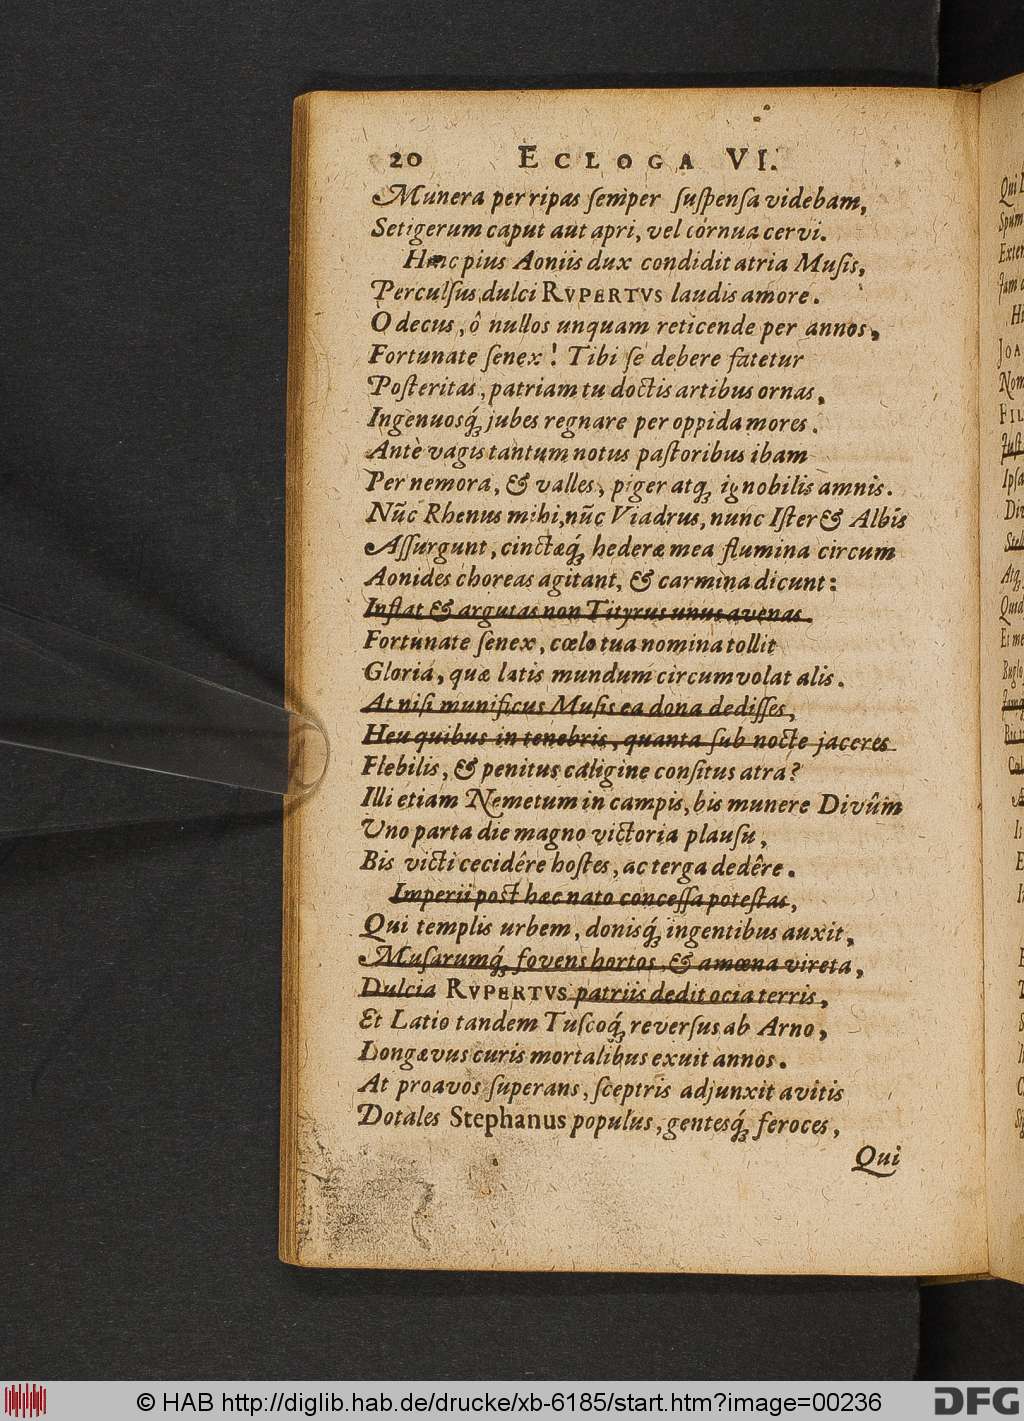 20 ECLOGA VI.
Munera per ripas ſemper ſuſpenſa videbam,
Setigerum caput aut apri, vel córnua cervi.
Hinc pius Aoniis dux condidit atria Muſis,
Perculſus dulci RVPERTVS laudis amore.
O decus, ô nullos unquam reticende per annos,
Fortunate ſenex! Tibi ſe debere fatetur
Poſteritas, patriam tu doctis artibus ornas,
Ingenuosq́; jubes regnare per oppida mores.
Antè vagis tantum notus paſtoribus ibam
Per nemora, & valles, piger atq; ignobilis amnis.
Nũc Rhenus mihi, nũc Viadrus, nunc Iſter & Albis
Aſſurgunt, cinctæq́; hederæ mea flumina circum
Aonides choreas agitant, & carmina dicunt:
Inflat & argutas non Tityrus unus avenas.
Fortunate ſenex, cœlo tua nomina tollit
Gloria, quæ latis mundum circumvolat alis.
At niſi munificus Muſis ea dona dediſſes,
Heu quibus in tenebris, quanta ſub nocte jaceres
Flebilis, & penitus caligine conſitus atra?
Illi etiam Nemetum in campis, bis munere Divûm
Vno parta die magno victoria plauſu,
Bis victi cecidêre hoſtes, ac terga dedêre.
Imperii poſt hæc nato conceſſa poteſtas,
Qui templis urbem, donisq́; ingentibus auxit,
Muſarumq́; fovens hortos, & amœna vireta,
Dulcia RVPERTVS patriis dedit ocia terris,
Et Latio tandem Tuſcoq́; reverſus ab Arno,
Longævus curis mortalibus exuit annos.
At proavos ſuperans, ſceptris adjunxit avitis
Dotales Stephanus populus, gentesq́; feroces,
Qui
© HAB http://diglib.hab.de/drucke/xb-6185/start.htm?image=00236
DFG